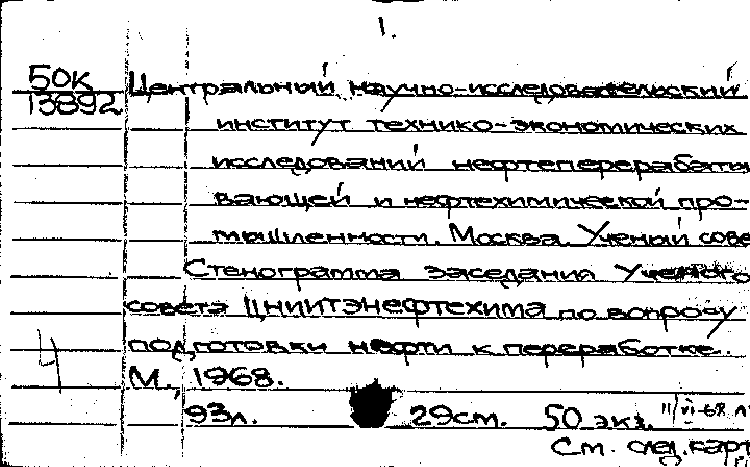 1.
50к Центральный научно-исследовательский
13892
институт технико-экономических
исследований нефтеперерабаты
вающей и нефтехимической про-
мышленности. Москва. Ученый сове
Стенограмма заседания Ученого
совета ЦНИИТЭнефтехима по вопросу
подготовки нефти к переработке.
4
М., 1968.
93л. 29см. 50 экз. 11/VI-68 л
См. след. карт